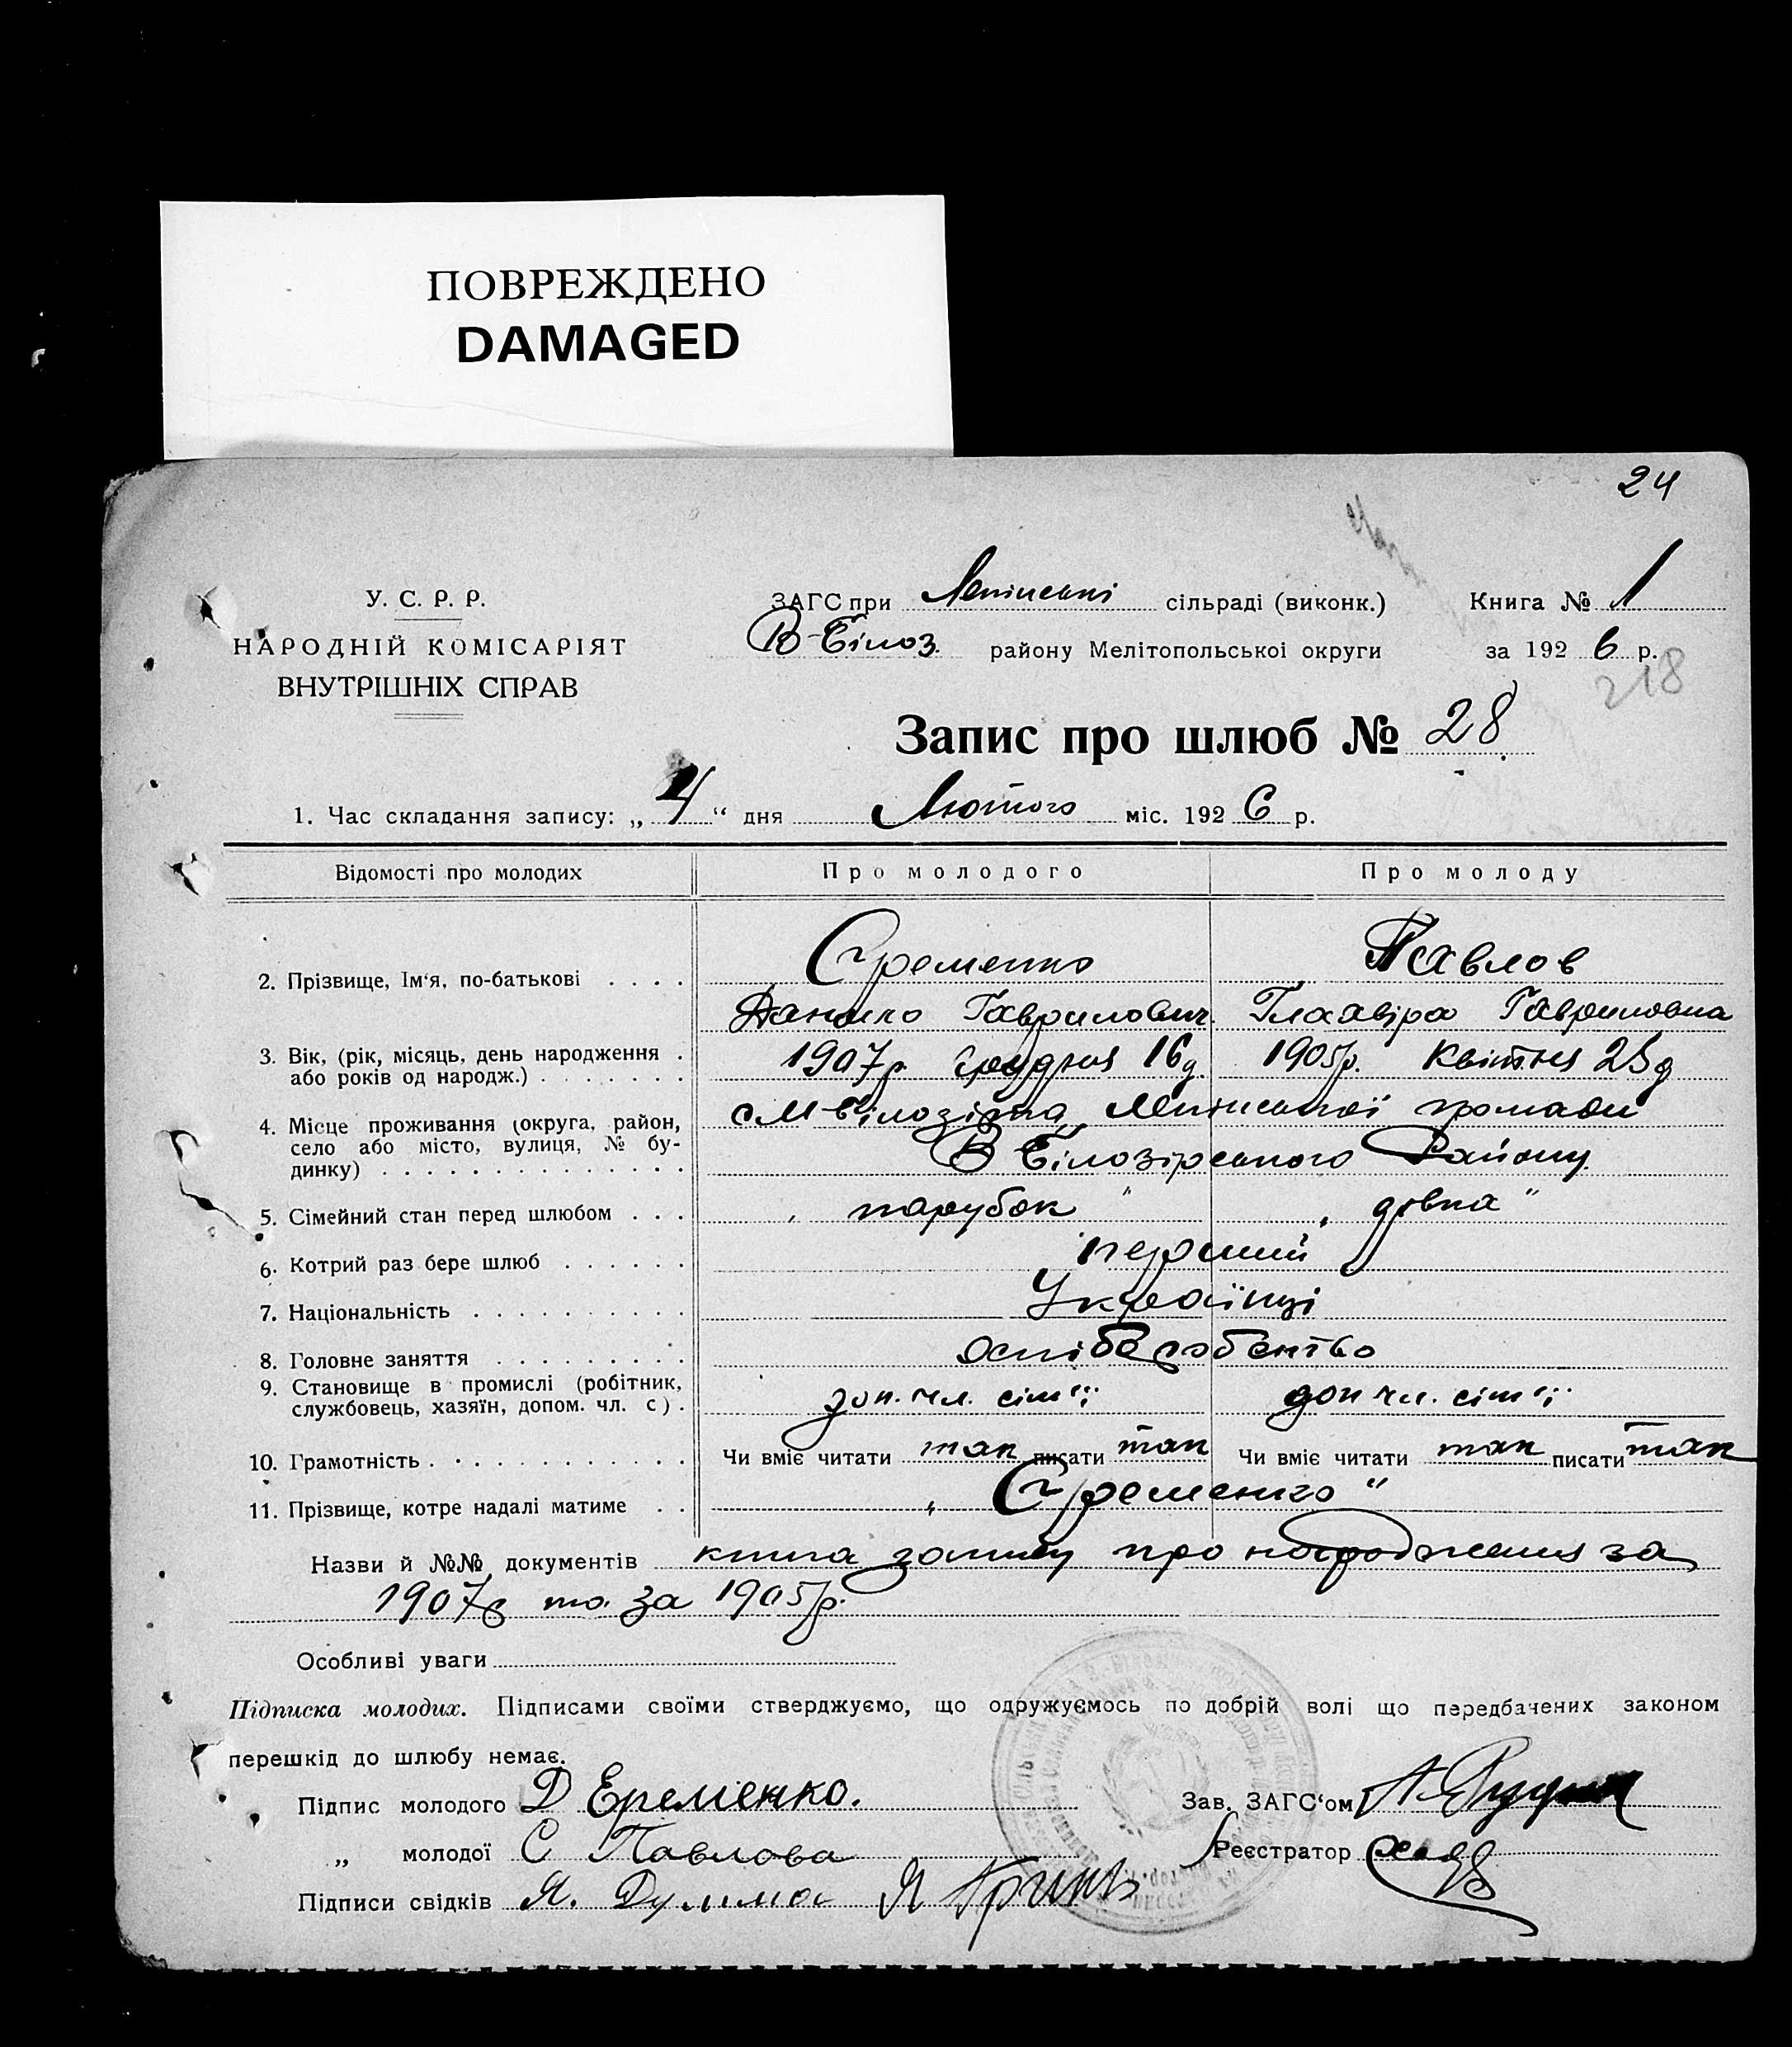 ПОВРЕЖДЕНО
DAMAGED
24
У. С. Р. Р.
НАРОДНІЙ КОМІСАРІЯТ
ВНУТРІШНІХ СПРАВ
ЗАГС при Ленінські сільраді (виконк.) Книга № 1
В-Білоз. району Мелітопольської округи за 192 6 р.
218
Запис про шлюб № 28
1. Час складання запису: „ 4 “ дня Лютого міс. 192 6 р.
Відомості про молодих Про молодого Про молоду
2. Прізвище, Ім‘я, по-батькові Єременко Павлов
Данило Гаврилович. Глаавіра Гавриловна
3. Вік, (рік, місяць, день народження або років од народж.) 1907р. грудня 16д. 1905р. Квітня 25д
4. Місце проживання (округа, район, село або місто, вулиця, № будинку) с М-Білозірка Ленінської громади
В Білозірського Району.
5. Сімейний стан перед шлюбом „ парубок “ „ дівка “
6. Котрий раз бере шлюб перший
7. Національність Українці
8. Головне заняття
9. Становище в промислі (робітник, службовець, хазяїн, допом. чл. с) доп. чл. сім'ї доп чл. сім'ї
10. Грамотність Чи вміє читати так писати так Чи вміє читати так писати так
11. Прізвище, котре надалі матиме „ Єременко “
Назви й №№ документів книга запису про народження за
1907р та за 1905р.
Особливі уваги
Підписка молодих. Підписами своїми стверджуємо, що одружуємось по добрій волі що передбачених законом
перешкід до шлюбу немає.
Підпис молодого Д Еременко. Зав. ЗАГС‘ом
„ молодої С Павлова Реєстратор
Підписи свідків Я.